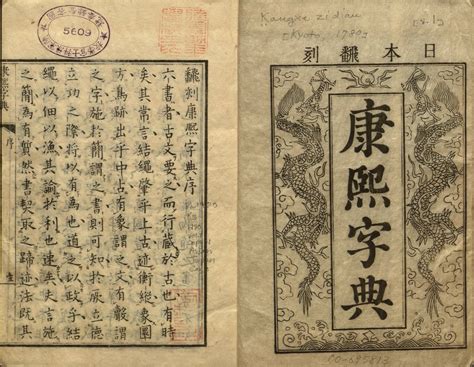 Kangxi zidian
(Kyoto, 1780)
日本飜刻
康熙字典
5609
飜刻康熙字典序
六書者古文要之而行藏於古也有時
矣其常言結繩肇乎上古迹衡縱象圖
方鳥跡出乎中古有像謂之文有謂
之字施於簡謂之書則可知於厥立德
立功之際將以有為也道之以政乎結
繩以佃以漁其諭於利也速矣史言施
之簡為有然書契取之迹法既其
康熙字典
序